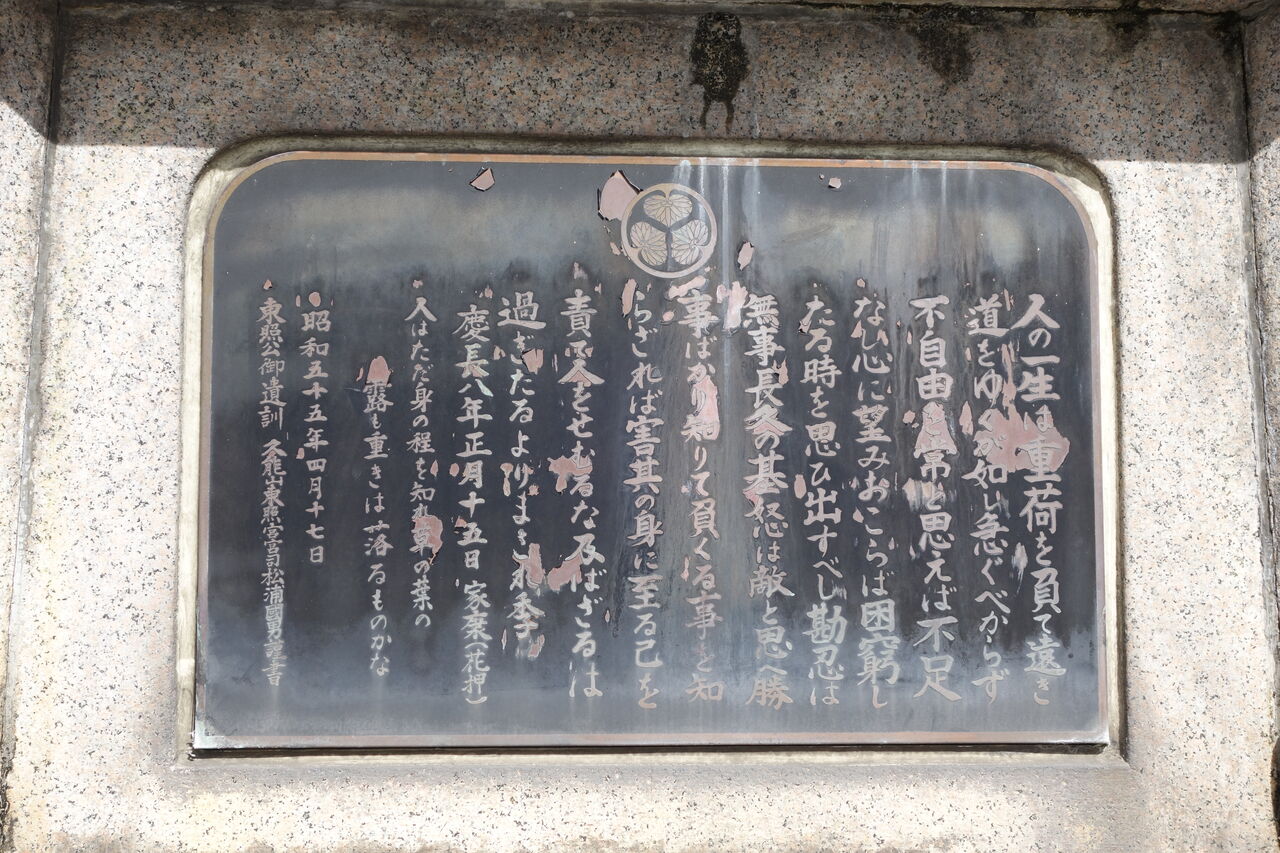 人の一生は重荷を負て遠き
道をゆくが如し急ぐべからず
不自由を常と思えば不足
なし心に望みおこらば困窮し
たる時を思ひ出すべし勘忍は
無事長久の基怒は敵と思へ勝
事ばかり知りて負くる事を知
らざれば害其の身に至る己を
責て人をせむるな及ばざるは
過ぎたるよりまされ李
慶長八年正月十五日 家康(花押)
人はただ身の程を知れ草の葉の
露も重きは落るものかな
昭和五十五年四月十七日
東照公御遺訓 久能山東照宮宮司松浦國男謹書